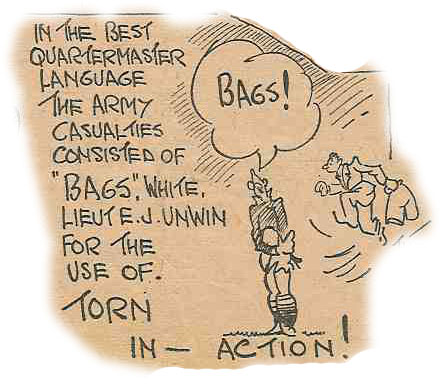 IN THE BEST
QUARTERMASTER
LANGUAGE
THE ARMY
CASUALTIES
CONSISTED OF
"BAGS", WHITE,
LIEUT E.J. UNWIN
FOR THE
USE OF.
TORN
IN — ACTION!
BAGS!